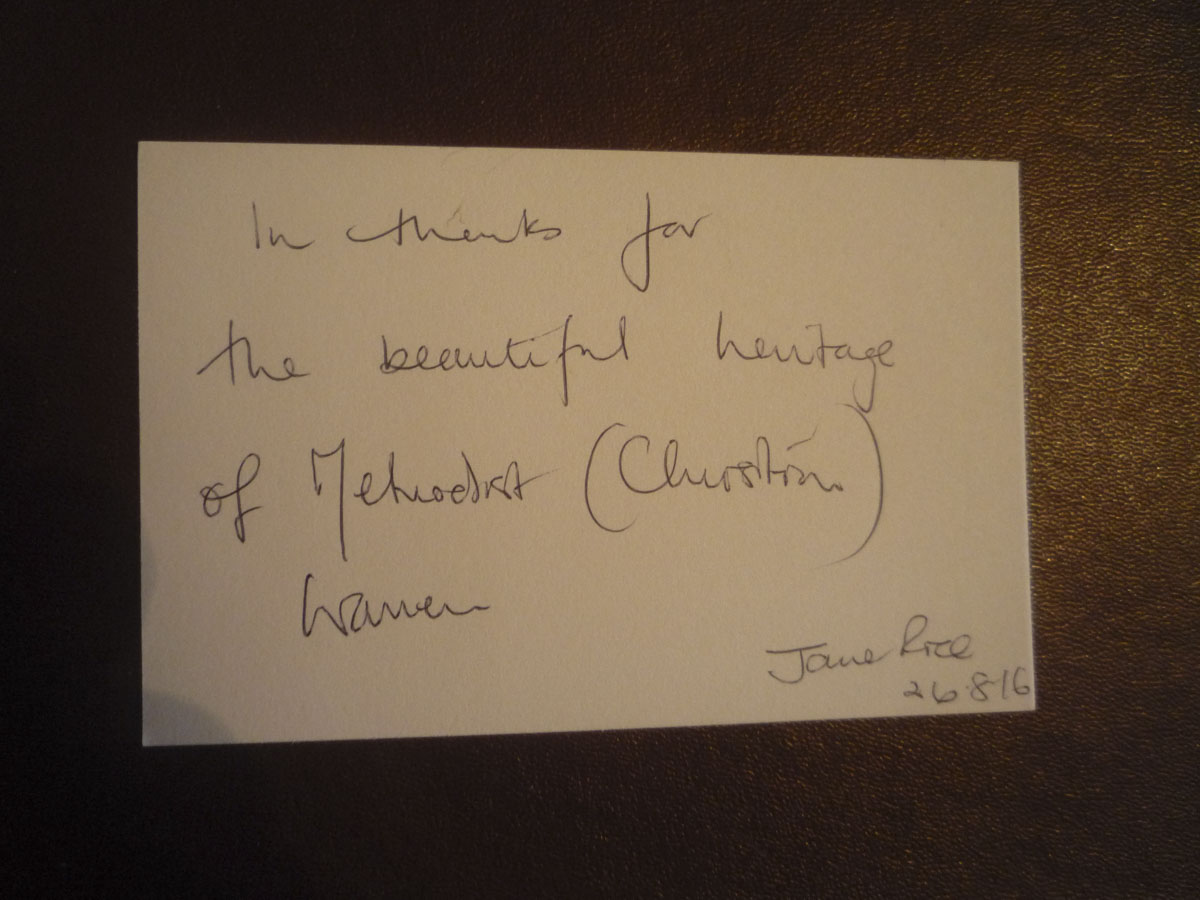 In thanks for
the beautiful heritage
of Methodist (Christian)
women
Jane Rice
26.8.16